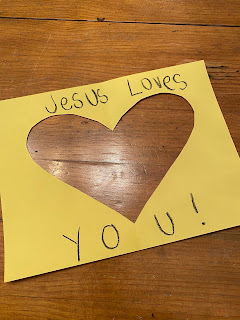 Jesus Loves
YOU!